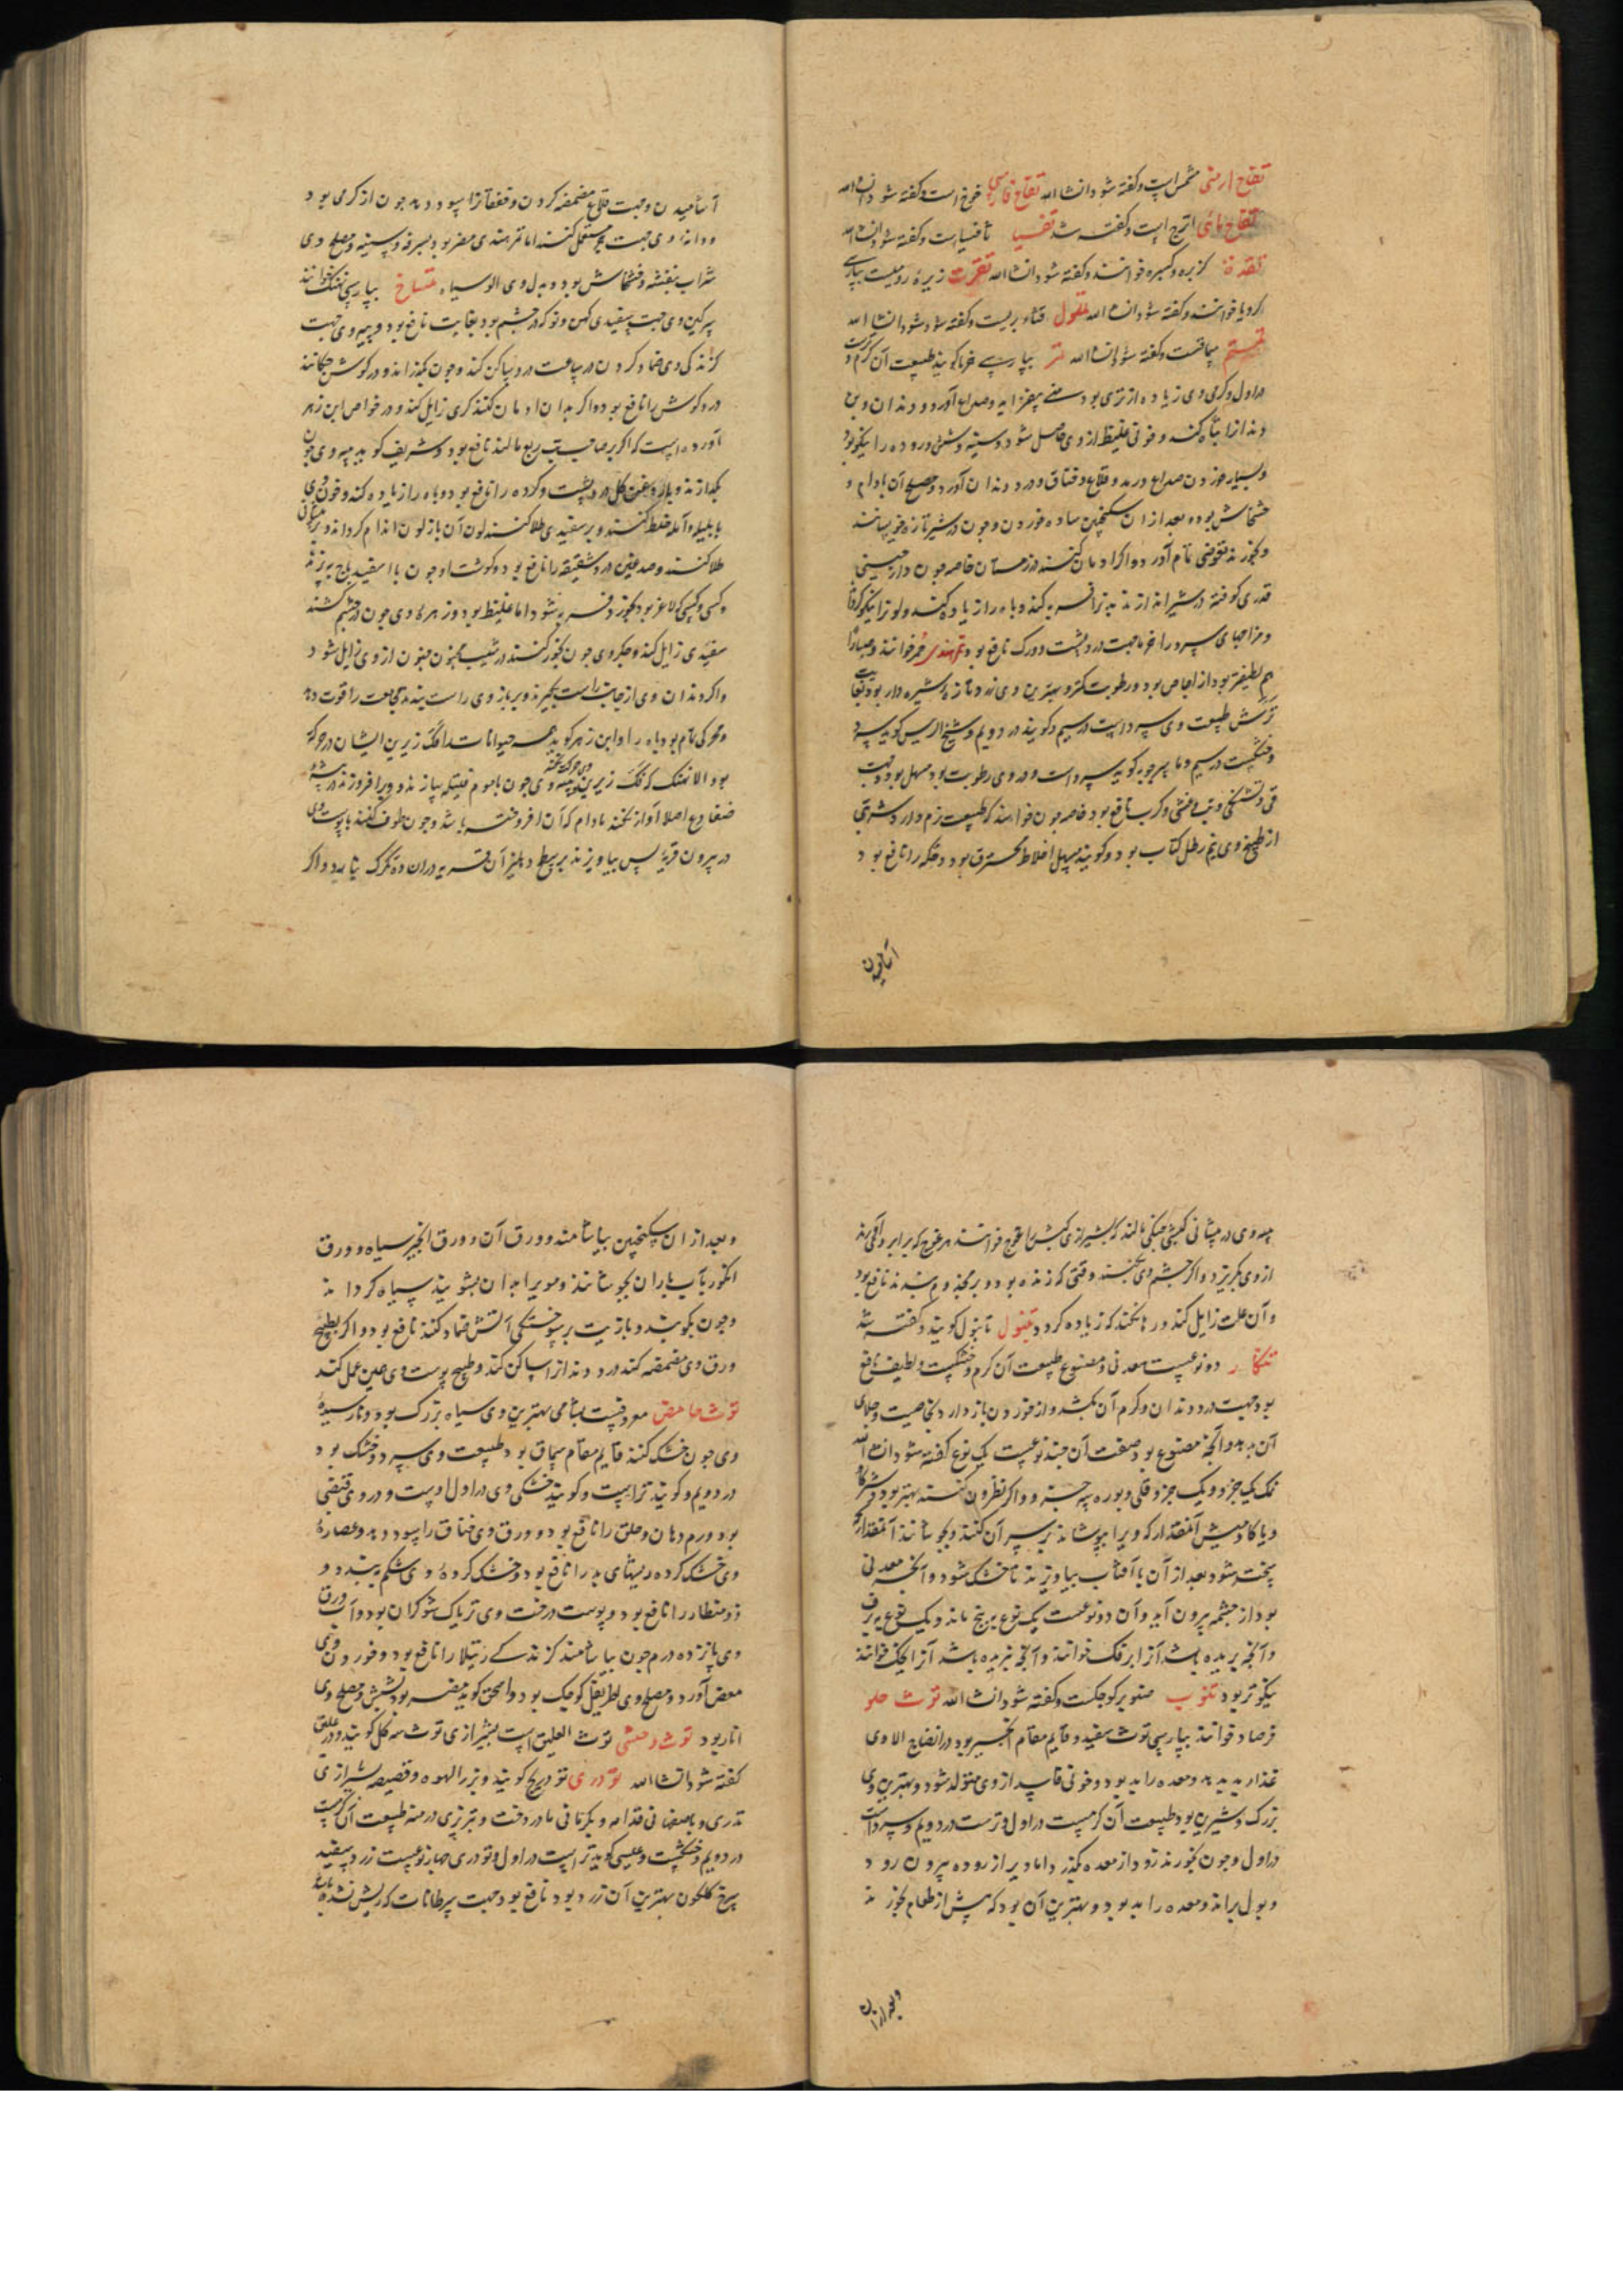 تفاح ارمنی مشمش است و کفته شود انشا الله تفاح فارسی خوخ است و کفته شود انشا الله
تفاح مائی اترج است و کفته شد تفسیا تافسیاست و کفته شود انشا الله
تقدة کزبره و کسبره خوانند و کفته شود انشا الله تقرت زیرهٔ رومیست بپارسی
کرویا خوانند و کفته شود انشا الله قثاء بریست و کفته شود انشا الله
سماقست و کفته شود انشا الله تمر بپارسی خرما کویند طبیعت آن کرم و ترست
در اول و کرمی وی زیاده از تری بود منی بیفزاید و صداع آورد و دندان و بن
دندانرا تباه کند و خونی غلیظ از وی حاصل شود و سینه و شش و روده را نیکو بود
و بسیار خوردن صداع و قلاع و خناق و درد دندان آورد و مصلح آن بادام و
خشخاش بود و بعد از ان سکنجبین ساده خوردن و چون در شیر تازه خیسانند
و بخورند نعوظی تام آورد و اکر ادمان کنند در زمستان خاصه چون دارچینی
قدری کوفته در شیر اندازند بدنرا فربه کند و باه را زیاده کند و لونرا نیکو کرداند
و مزاجهای سرد را خرما جهت درد پشت و ورک نافع بود تمر هندی حمر خوانند و صبارا
هم لطیفتر بود از اجاص بود و رطوبت کمتر و بهترین وی نو و تازه شیره دار بود بغایت
ترش طبیعت وی سرد است در سیم و کویند در دویم و شیخ الرئیس کوید سرد
و خشکست در سیم و ماسرجویه کوید سرد است و در وی رطوبت بود مسهل بود و جهت
قی و تشنکی و تب و غشی و کرب نافع بود خاصه چون خواهند که طبیعت نرم دارد شربتی
از طبیخ وی نیم رطل کتاب بود و کویند مسهل اخلاط محترق بود و حکه را نافع بود
آشامیدن
آشامیدن و جهت قلاع مضمضه کردن و خفقانرا سود دهد چون از کرمی بود
و دانهٔ وی جهت مستعمل کنند اما تمر هندی مضر بود بسرفه و سینه و مصلح وی
شراب بنفشه و خشخاش بود و بدل وی الوسیاه تمساح بپارسی نهنک خوانند
سرکین وی جهت سفیدی کهن و نو که در چشم بود بغایت نافع بود و پیه وی جهت
کزندکی وی ضماد کردن در ساعت درد ساکن کند و چون بکذرانند و در کوش چکانند
درد کوش را نافع بود و اکر بدان ادمان کنند کری زایل کند و در خواص ابن زهر
آورده است که اکر بر صاحب تب ربع مالند نافع بود و شریف کوید پیه وی چون
بکدازند و با روغن کل درد پشت و کرده را نافع بود و باه را زیاده کند و خون وی
با هلیله و آمله خلط کنند و بر سفیدی طلا کنند لون آن باز لون اندام کرداند و بر پیشانی
طلا کنند و صدغین درد شقیقه را نافع بود و کوشت او چون با اسفیدباج بپزند
و کسی که لاغر بود بخورد فربه شود اما غلیظ بود و زهرهٔ وی چون در چشم کشند
سفیدی زایل کند و جکر وی چون بخور کنند در شیب مجنون جنون از وی زایل شود
و اکر دندان وی از جانب راست بکیرند و بر بازوی راست بندند مجامعت را قوت دهد
و محرکی تام بود باه را و ابن زهر کوید همه حیوانات فک زیرین ایشان در حرکة
بود الا نهنک که فک زیرین وی حرکت نکند و پیه وی چون با موم فتیله سازند و ویرا افروزند در بیشهٔ
ضفادع اصلا آواز نکنند مادام که آن افروخته باشد و چون طوف کنند با پوست وی
در بیرون قریه پس بیاویزند بر سطح دهلیز آن قریه در ان ده تکرک نبارد و اکر
پیه وی در پیشانی کبش جنکی مالند که بشیرازی کبش را غوج خوانند هر غوج که برابر وی آرند
از وی بکریزد و اکر چشم وی بکنند وقتی که زنده بود و بر مجذوم بندند نافع بود
و آن علت زایل کند و رها نکند که زیاده کردد تنبول تانبول کویند و کفته شد
تنکار دو نوعست معدنی و مصنوع طبیعت آن کرم و خشکست و لطیف نافع
بود جهت درد دندان و کرم آن بکشد و از خوردن باز دارد بخاصیت و جلای
آن بدهد و آنچه مصنوع بود صفت آن چند نوعست یک نوع کفته شود انشا الله
نمک یک جزو و یک جزو قلی و بوره سه جزو و اکر نظرون کنند بهتر بود و شیر کاو
و یا کاومیش آنقدار که ویرا بپوشاند بر سر آن کنند و بجوشانند آنقدار که
پخت شود بعد از آن با آفتاب بیاویزند تا خشک شود و آنچه معدنی
بود از چشمه بیرون آید و آن دو نوعست یک نوع به برنج ماند و یک نوع به برف
و آنچه بریده باشد آنرا برفک خوانند و آنچه نبریده باشد آنرا خوانند
نیکوتر بود تنوب صنوبر کوچکست و کفته شود انشا الله توث حلو
فرصاد خوانند بپارسی توث سفید و قایم مقام انجیر بود در انضاج الا وی
غذا بد دهد و معده را بد بود و خونی فاسد از وی متولد شود و بهترین وی
بزرک و شیرین بود طبیعت آن کرمست در اول و ترست در دویم و سردست
در اول و چون بخورند زود از معده بکذرد اما دیر از روده بیرون رود
و بول براند و معده را بد بود و بهترین آن بود که پیش از طعام بخورند
و بعد از ان
و بعد از ان سکنجبین بیاشامند و ورق آن و ورق انجیر سیاه و ورق
انکور بآب باران بجوشانند و مویرا بدان بشویند سیاه کرداند
و چون بکوبند و با زیت بر سوختکی آتش ضماد کنند نافع بود و اکر بطبیخ
ورق وی مضمضه کنند درد دندانرا ساکن کند و طبیخ پوست وی همین عمل کند
توث حامض معروفست بشامی بهترین وی سیاه بزرک بود و نارسیدهٔ
وی چون خشک کنند قایم مقام سماق بود طبیعت وی سرد و خشک بود
در دویم و کویند تر است و کویند خشکی وی در اول اوست و در وی قبضی
بود ورم دهان و حلق را نافع بود و ورق وی خناق را سود دهد و عصارهٔ
وی خشک کرده ریشهای بد را نافع بود و خشک کردهٔ وی شکم ببندد و
ذوسنطاریا را نافع بود و پوست درخت وی تریاک شوکران بود و آب ورق
وی پانزده درم چون بیاشامند کزندکی رتیلا را نافع بود و خوردن وی
مغص آورد و مصلح وی اطریفل کوچک بود و اسحق کوید مضر بود بشش و مصلح وی
انار بود توث وحشی توث العلیق است بشیرازی توث سه کل کویند و در علیق
کفته شود انشا الله تودری تودریج کویند و بزر الهوه و قصیصه بشیرازی
تدری و باصفهانی قدامه و بکرمانی مادر دخت و بتبریزی در منه طبیعت آن کرمست
در دویم و خشکست و عیسی کوید تر است در اول و تودری چهار نوعست زرد و سفید
سرخ کلکون بهترین آن زرد بود نافع بود جهت سرطانات که ریش نشده باشد